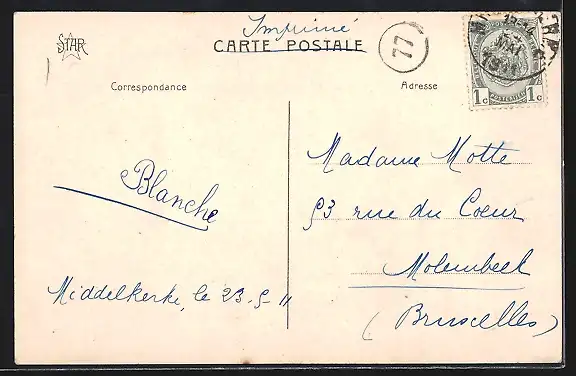 Imprimé
STAR
CARTE POSTALE
77
1c 1c
Correspondance
Adresse
Blanche
Middelkerke, le 23-5-11
Madame Motte
53 rue du Coeur
Molenbeek
(Bruxelles)